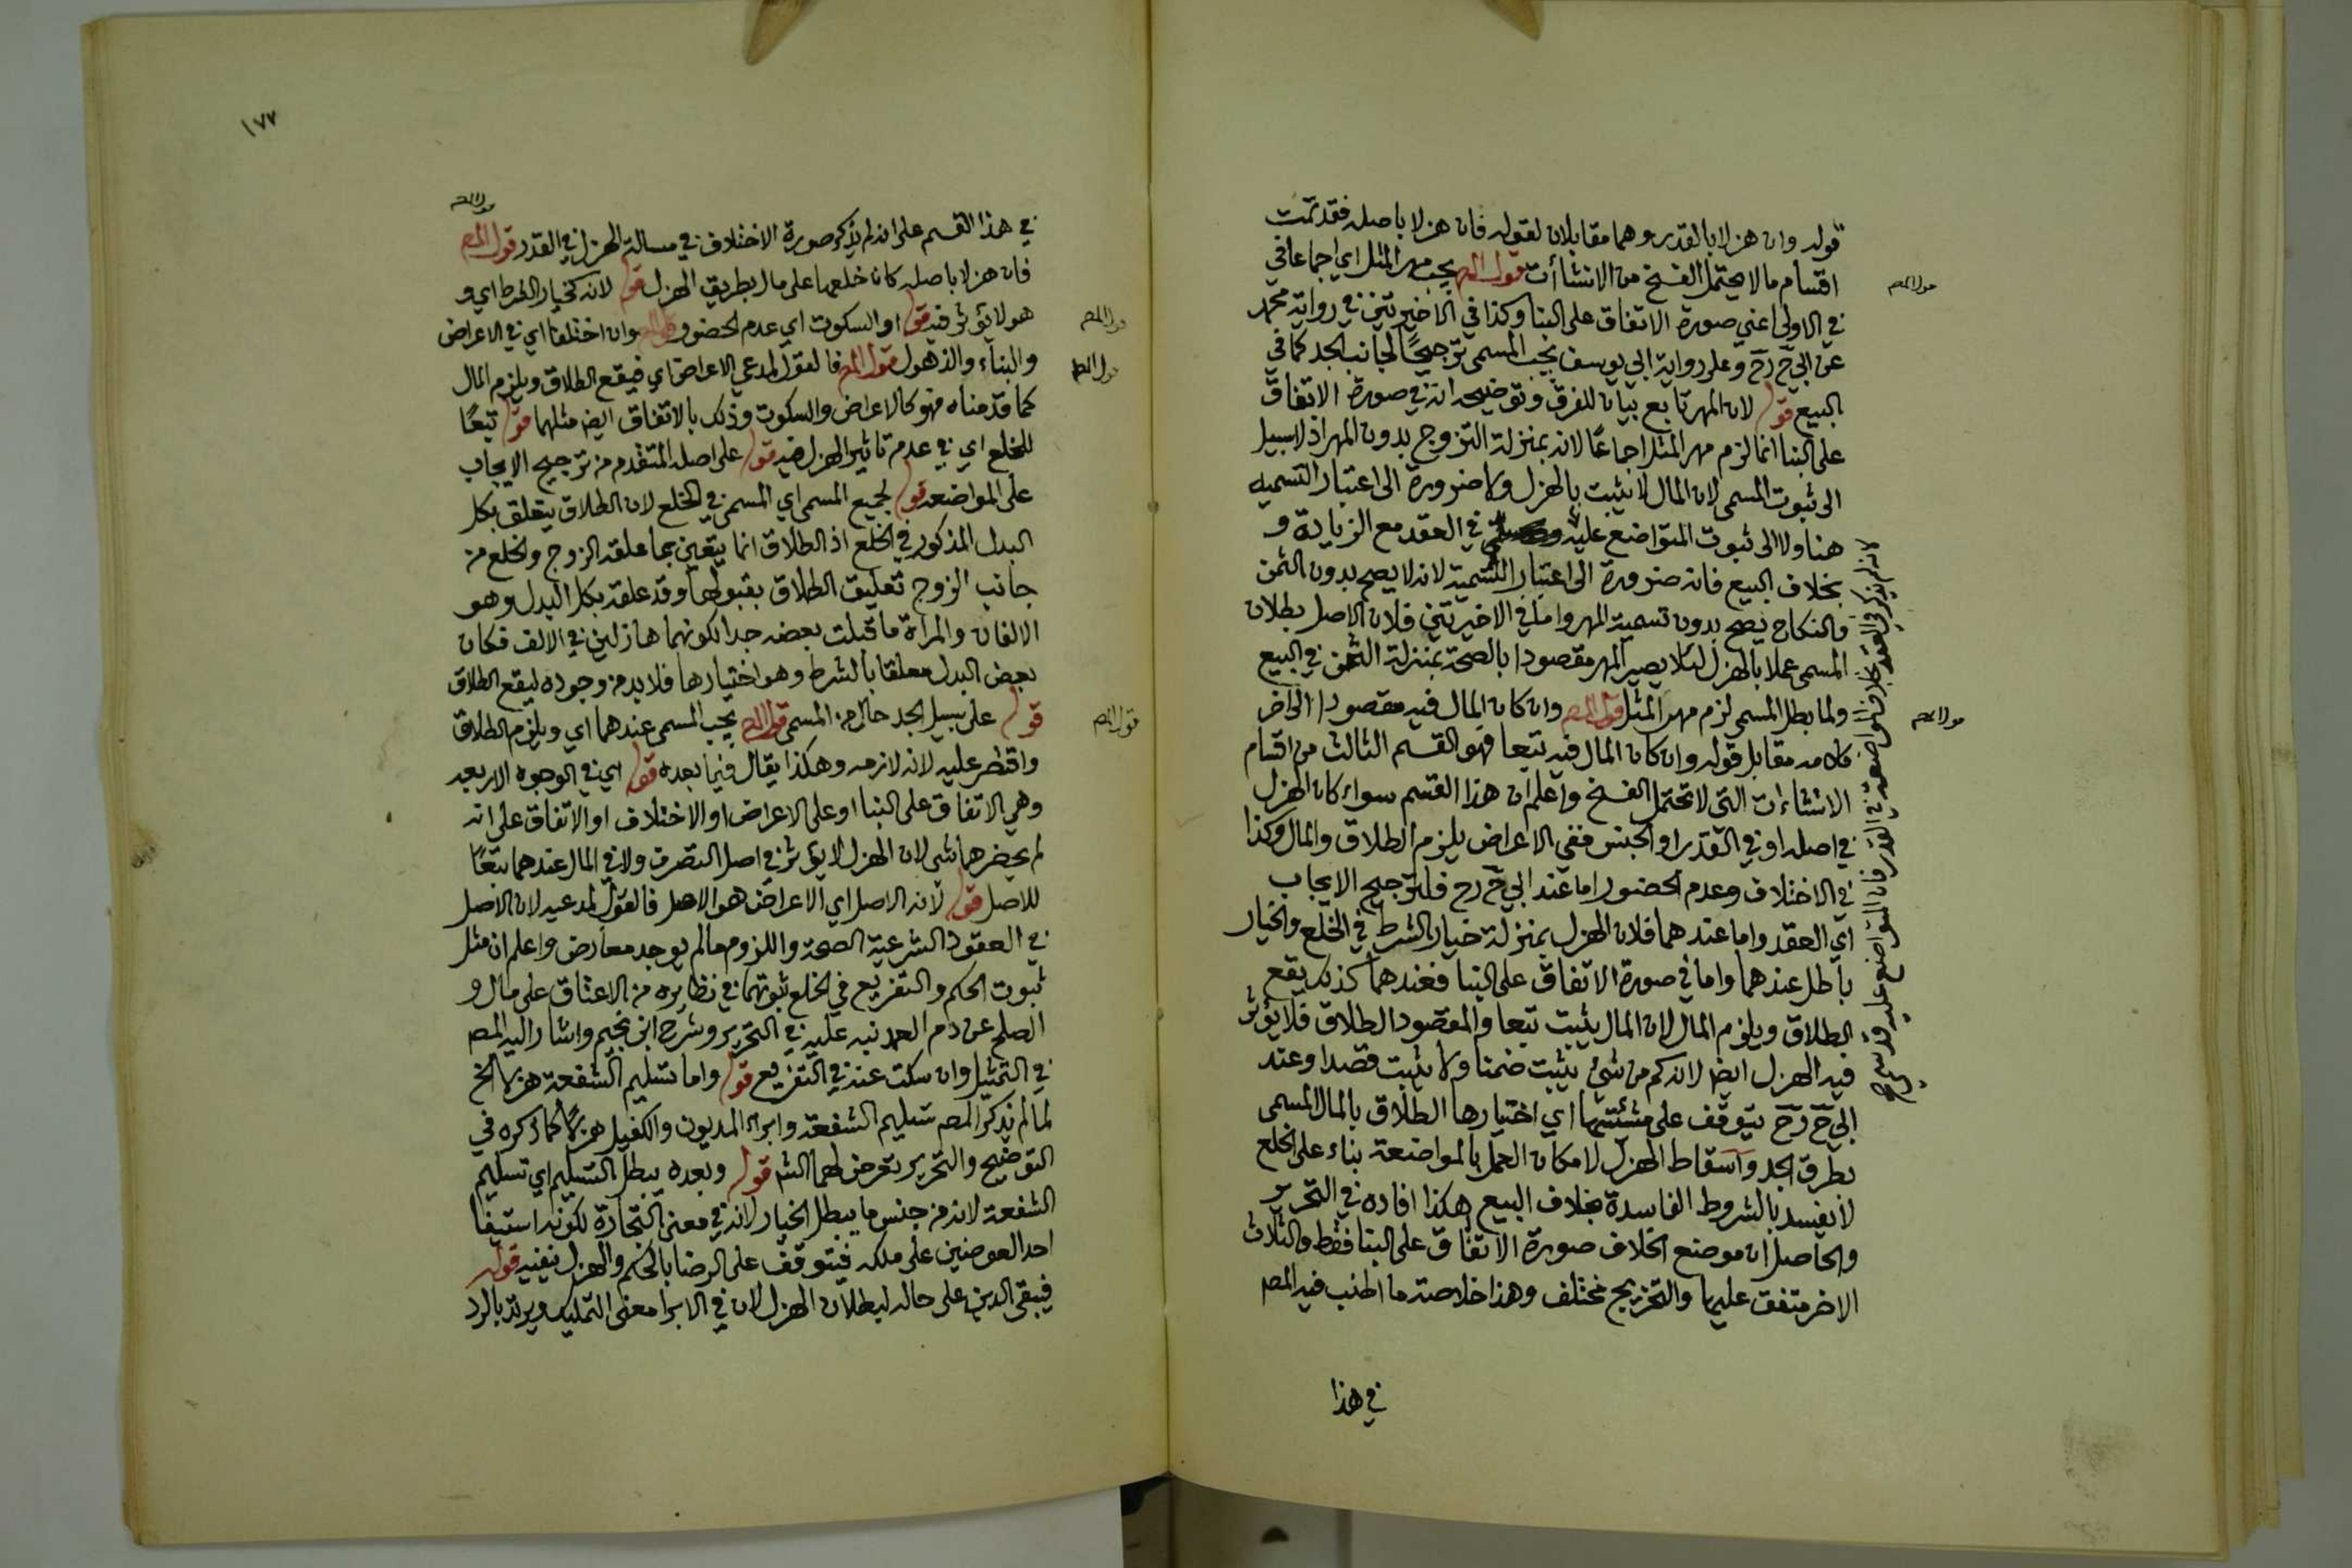 قوله وان هزلا بالقدر وهما مقابلان لقوله فان هزلا باصله فقد تمت
اقسام ما لا يحتمل الفسخ من الانشاأت قول المص يجب مهر المثل اي اجماعا في
في الاولى اعني صورة الاتفاق على البنا وكذا في الاخيرتين في رواية محمد
عن ابي ح رح وعلى رواية ابي يوسف يجب المسمى ترجيحًا لجانب الجد كما في
البيع قوله لان المهر تابع بيان للفرق وتوضيحه انه في صورة الاتفاق
على البنا انما لزم مهر المثل اجماعًا لانه بمنزلة التزوج بدون المهر اذ لا سبيل
الى ثبوت المسمى لان المال لا يثبت بالهزل ولا ضرورة الى اعتبار التسميه
هنا ولا الى ثبوت المتواضع عليه في العقد مع الزيادة و
بخلاف البيع فانه ضرورة الى اعتبار التسمية لانه لا يصح بدون الثمن
والنكاح يصح بدون تسمية المهر واما في الاخيرتين فلان الاصل بطلان
المسمى عملا بالهزل لئلا يصير المهر مقصودا بالصحة بمنزلة الثمن في البيع
ولما بطل المسمى لزم مهر المثل قول المص وان كان المال فيه مقصودا الى اخر
كلامه مقابل قوله وان كان المال فيه تبعا فهو القسم الثالث من اقسام
الانشاءات التي لا تحتمل الفسخ واعلم ان هذا القسم سواء كان الهزل
في اصله او في القدر او الجنس ففي الاعراض يلزم الطلاق والمال وكذا
في الاختلاف وعدم الحضور اما عند ابي ح رح فلترجيح الايجاب
اي العقد واما عندهما فلان الهزل بمنزلة خيار الشرط في الخلع والخيار
باطل عندهما واما في صورة الاتفاق على البنا فعندهما كذلك يقع
الطلاق ويلزم المال لان المال يثبت تبعا والمقصود الطلاق فلا يؤثر
فيه الهزل ايض لانه كم من شئ يثبت ضمنا ولا يثبت قصدا وعند
ابي ح رح يتوقف على مشئتها اي اختيارها الطلاق بالمال المسمى
بطرق الجد واسقاط الهزل لامكان العمل بالمواضعة بناء على الخلع
لا يفسد بالشروط الفاسدة بخلاف البيع هكذا افاده في التحرير
والحاصل ان موضع الخلاف صورة الاتفاق على البنا فقط والثلاث
الاخر متفق عليها والتخريج مختلف وهذا خلاصة ما اطنب فيه المص
في هذا
لانه لم يذكر في العقد بخلاف المواضعة في القدر فان المتواضع عليه قد سمي
قول المص
قول المص
١٧٧
قول المص
في هذا القسم على انه لم يذكر صورة الاختلاف في مسالة الهزل في القدر قول المص
فان هزلا باصله كانا خلعها على مال بطريق الهزل قوله لانه كخيار الشرط اي و
هو لا يؤثر فيه قوله او السكوت اي عدم الحضور قول المص وان اختلفا اي في الاعراض
والبناء والذهول قول المص فالقول لمدعي الاعراض اي فيقع الطلاق ويلزم المال
كما قدمناه فهو كالاعراض والسكوت وذلك بالاتفاق ايض مثلهما قوله تبعًا
للخلع اي في عدم تاثير الهزل فيه قوله على اصله المتقدم من ترجيح الايجاب
على المواضعه قوله لجميع المسمى اي المسمى في الخلع لان الطلاق يتعلق بكل
البدل المذكور في الخلع اذ الطلاق انما يتعين بما علقه الزوج والخلع من
جانب الزوج تعليق الطلاق بقبولها وقد علقه بكل البدل وهو
الالفان والمراة ما قبلت بعضه جدا لكونهما هازلين في الالف فكان
بعض البدل معلقا بالشرط وهو اختيارها فلا بد من وجوده ليقع الطلاق
قوله على سبيل الجد حال من المسمى قول المص يجب المسمى عندهما اي ويلزم الطلاق
واقتصر عليه لانه لازمه وهكذا يقال فيما بعده قوله اي في الوجوه الاربعه
وهي الاتفاق على البنا او على الاعراض او الاختلاف او الاتفاق على انه
لم يحضرهما شي لان الهزل لا يؤثر في اصل التصرف ولا في المال عندهما تبعًا
للاصل قوله لانه الاصل اي الاعراض هو الاصل فالقول لمدعيه لان الاصل
في العقود الشرعية الصحة واللزوم ما لم يوجد معارض واعلم ان مثل
ثبوت الحكم والتفريع في الخلع ثبوتهما في نظايره من الاعتاق على مال و
الصلح عن دم العمد نبه عليه في التحرير وشرح ابن نجيم واشار اليه المص
في التمثيل وان سكت عنه في التفريع قوله واما تسليم الشفعة هزلا الخ
لما لم يذكر المص تسليم الشفعة وابراء المديون والكفيل هزلًا كما ذكره في
التوضيح والتحرير تعرض لهما الش قوله وبعده يبطل التسليم اي تسليم
الشفعة لانه من جنس ما يبطل الخيار لانه في معنى التجارة لكونه استيفا
احد العوضين على ملكه فيتوقف على الرضا بالحكم والهزل ينفيه قوله
فيبقى الدين على حاله لبطلان الهزل لان في الابرا معنى التمليك ويرتد بالرد
قول المص
قول المص
قول المص